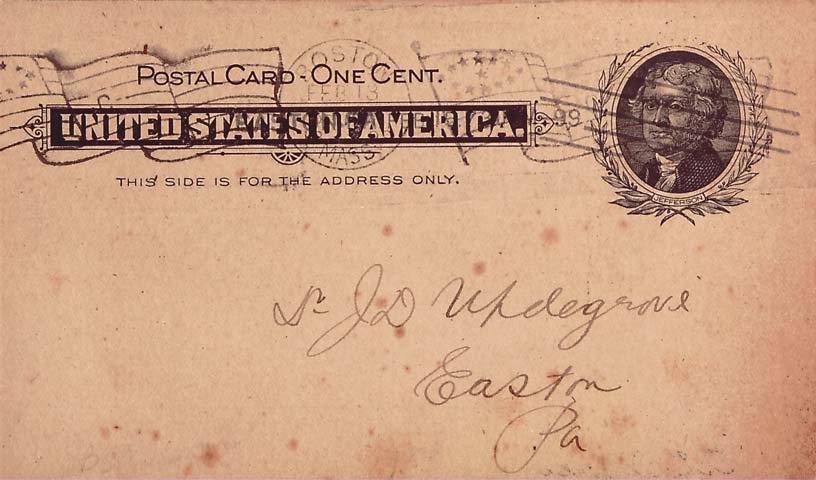 POSTAL CARD - ONE CENT.
BOSTON
FEB 13
99
UNITED STATES OF AMERICA.
MASS
THIS SIDE IS FOR THE ADDRESS ONLY.
JEFFERSON
Dr J D Updegrove
Easton
Pa